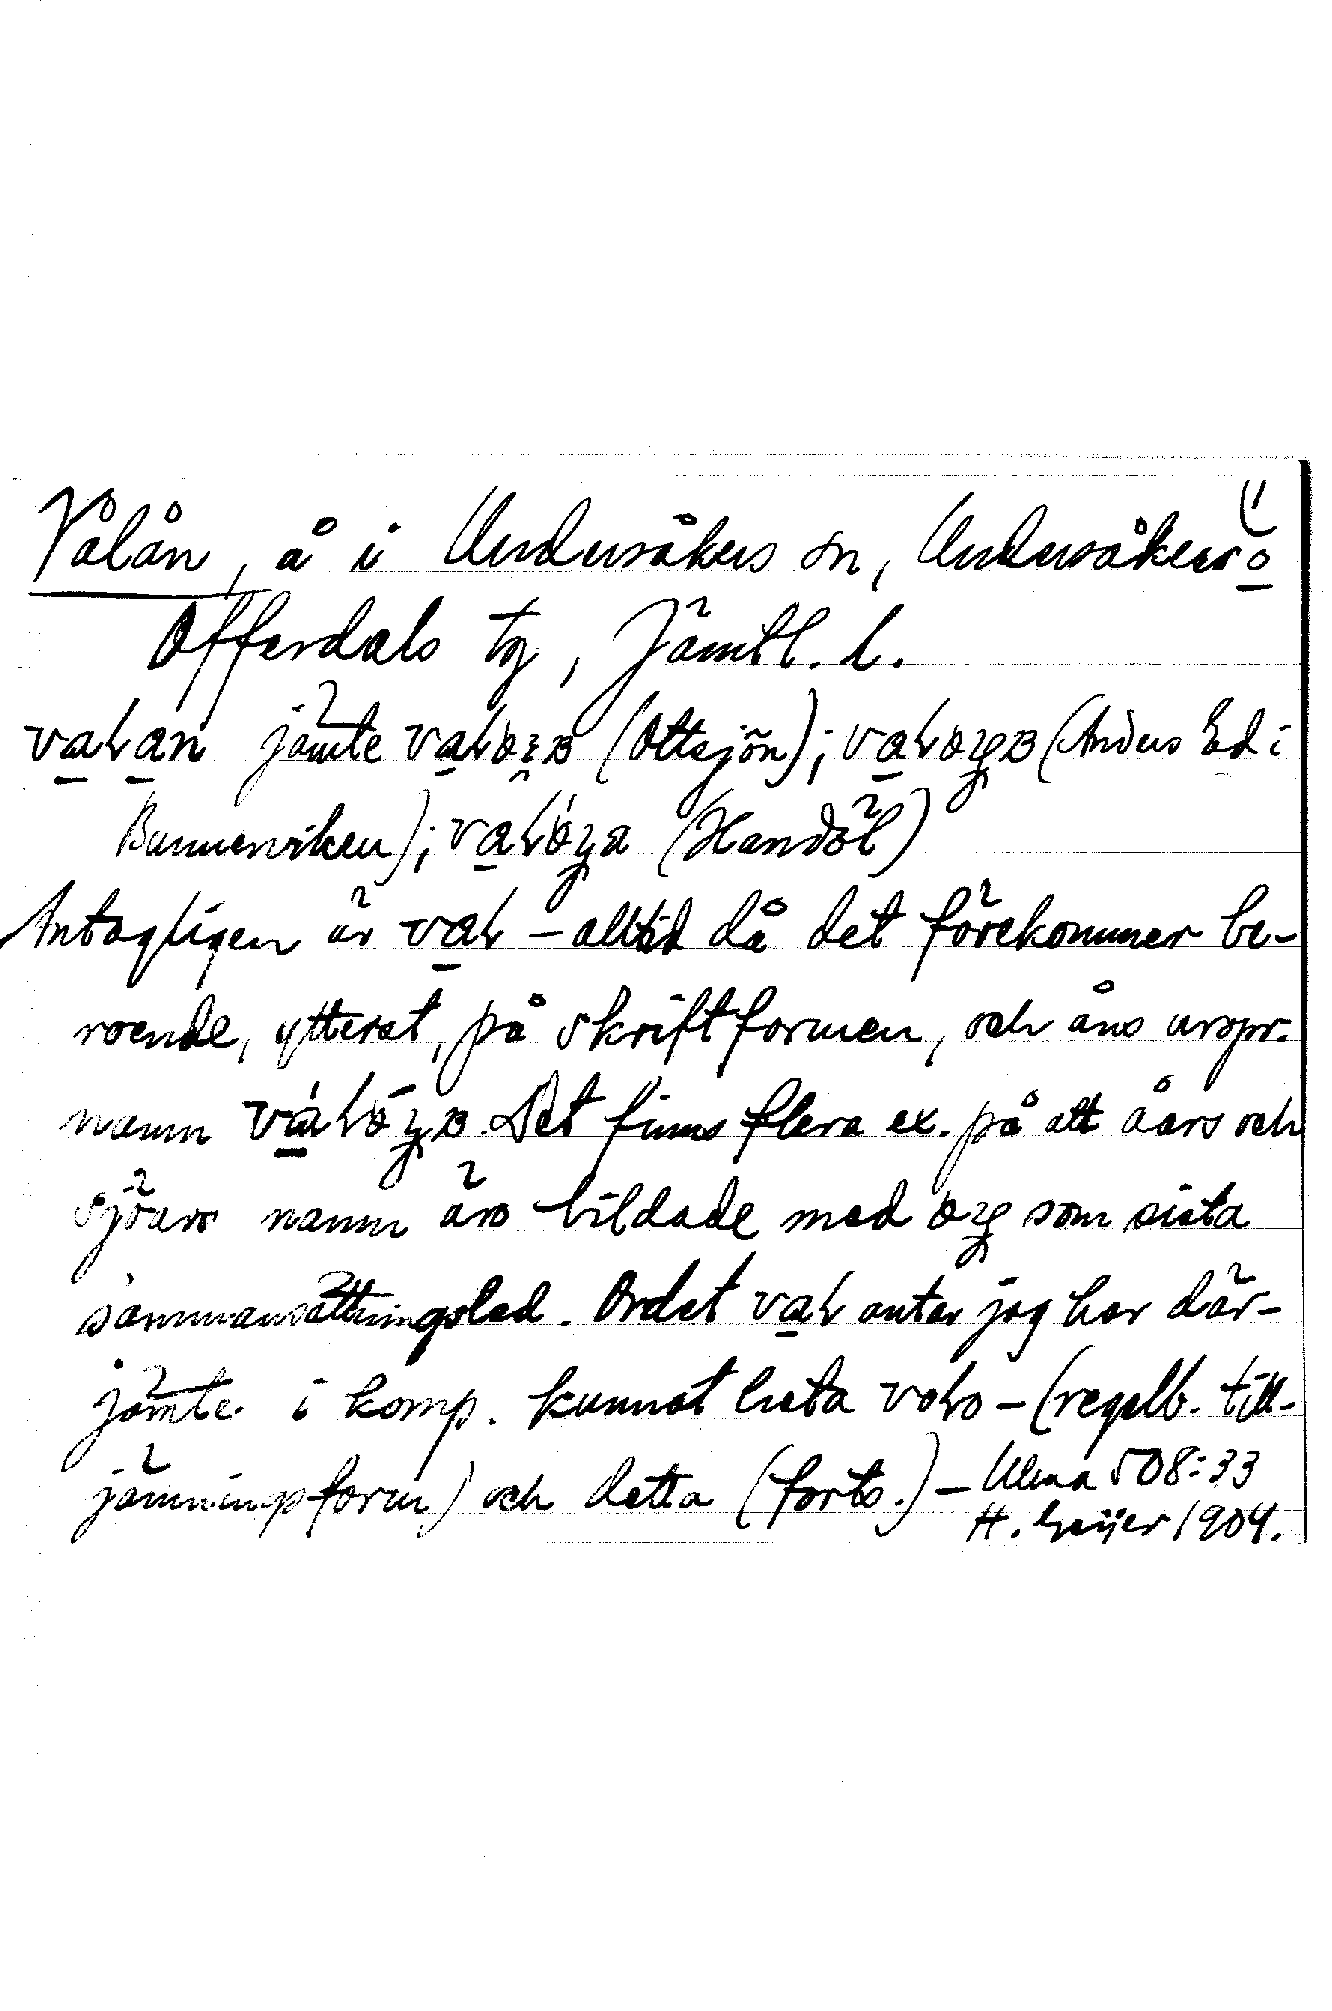 1)
Vålån, å i Undersåkers sn, Undersåkers o
Offerdals tg, Jämtl. l.
jämte (Ottsjön); (Anders Ed i
Bunnerviken); (Handöl)
Antagligen är – alltid då det förekommer be-
roende, ytterst, på skriftformen, och åns urspr.
namn Det finns flera ex. på att åars och
sjöars namn äro bildade med som sista
sammansättningsled. Ordet antar jag har där-
jämte i komp. kunnat heta – (regelb. till-
jämningsform) och detta (forts.) – Ulma 508:33
H. Geijer 1904.